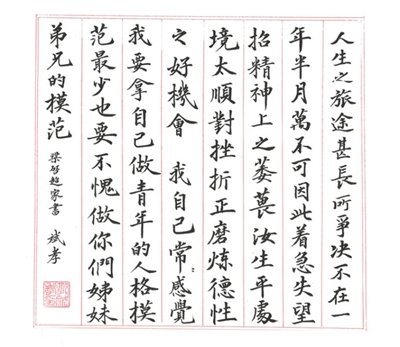 人生之旅途甚長所爭决不在一
年半月萬不可因此着急失望
招精神上之萎葨汝生平處
境太順對挫折正磨煉德性
之好機會 我自己常感覺
我要拿自己做青年的人格模
范最少也要不愧做你們姊妹
弟兄的模范
梁啓超家書 斌孝